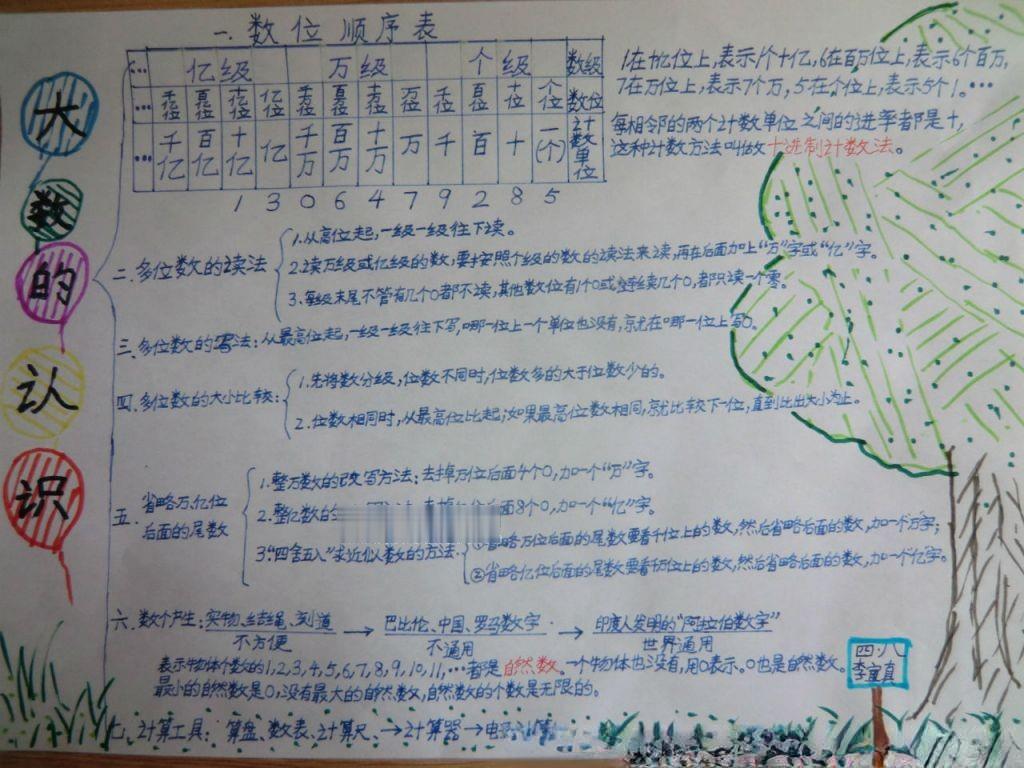 大
数
的
认
识
一.数位顺序表
… 亿级 万级 个级 数级
… 千亿位 百亿位 十亿位 亿位 千万位 百万位 十万位 万位 千位 百位 十位 个位 数位
… 千亿 百亿 十亿 亿 千万 百万 十万 万 千 百 十 一(个) 计数单位
1 3 0 6 4 7 9 2 8 5
1在十亿位上,表示1个十亿,6在百万位上,表示6个百万,
7在万位上,表示7个万,5在个位上,表示5个1。…
每相邻的两个计数单位之间的进率都是十,
这种计数方法叫做十进制计数法。
二.多位数的读法
1.从高位起,一级一级往下读。
2.读万级或亿级的数,要按照个级的数的读法来读,再在后面加上“万”字或“亿”字。
3.每级末尾不管有几个0都不读,其他数位有1个0或连续几个0,都只读一个零。
三.多位数的写法:从最高位起,一级一级往下写,哪一位上一个单位也没有,就在哪一位上写0。
四.多位数的大小比较:
1.先将数分级,位数不同时,位数多的大于位数少的。
2.位数相同时,从最高位比起;如果最高位数相同,就比较下一位,直到比出大小为止。
五.省略万、亿位
后面的尾数
1.整万数的改写方法:去掉万位后面4个0,加一个“万”字。
2.整亿数的 后面8个0,加一个“亿”字。
3.“四舍五入”求近似数的方法.
①省略万位后面的尾数要看千位上的数,然后省略后面的数,加一个万字;
②省略亿位后面的尾数要看千万位上的数,然后省略后面的数,加一个亿字。
六.数个产生:实物、结绳、刻道 → 巴比伦、中国、罗马数字. → 印度人发明的“阿拉伯数字”
不方便 不通用 世界通用
表示物体个数的1,2,3,4,5,6,7,8,9,10,11,…都是自然数。一个物体也没有,用0表示。0也是自然数。
最小的自然数是0,没有最大的自然数,自然数的个数是无限的。
七.计算工具:算盘、数表、计算尺、→计算器→电
四.八
李宜真